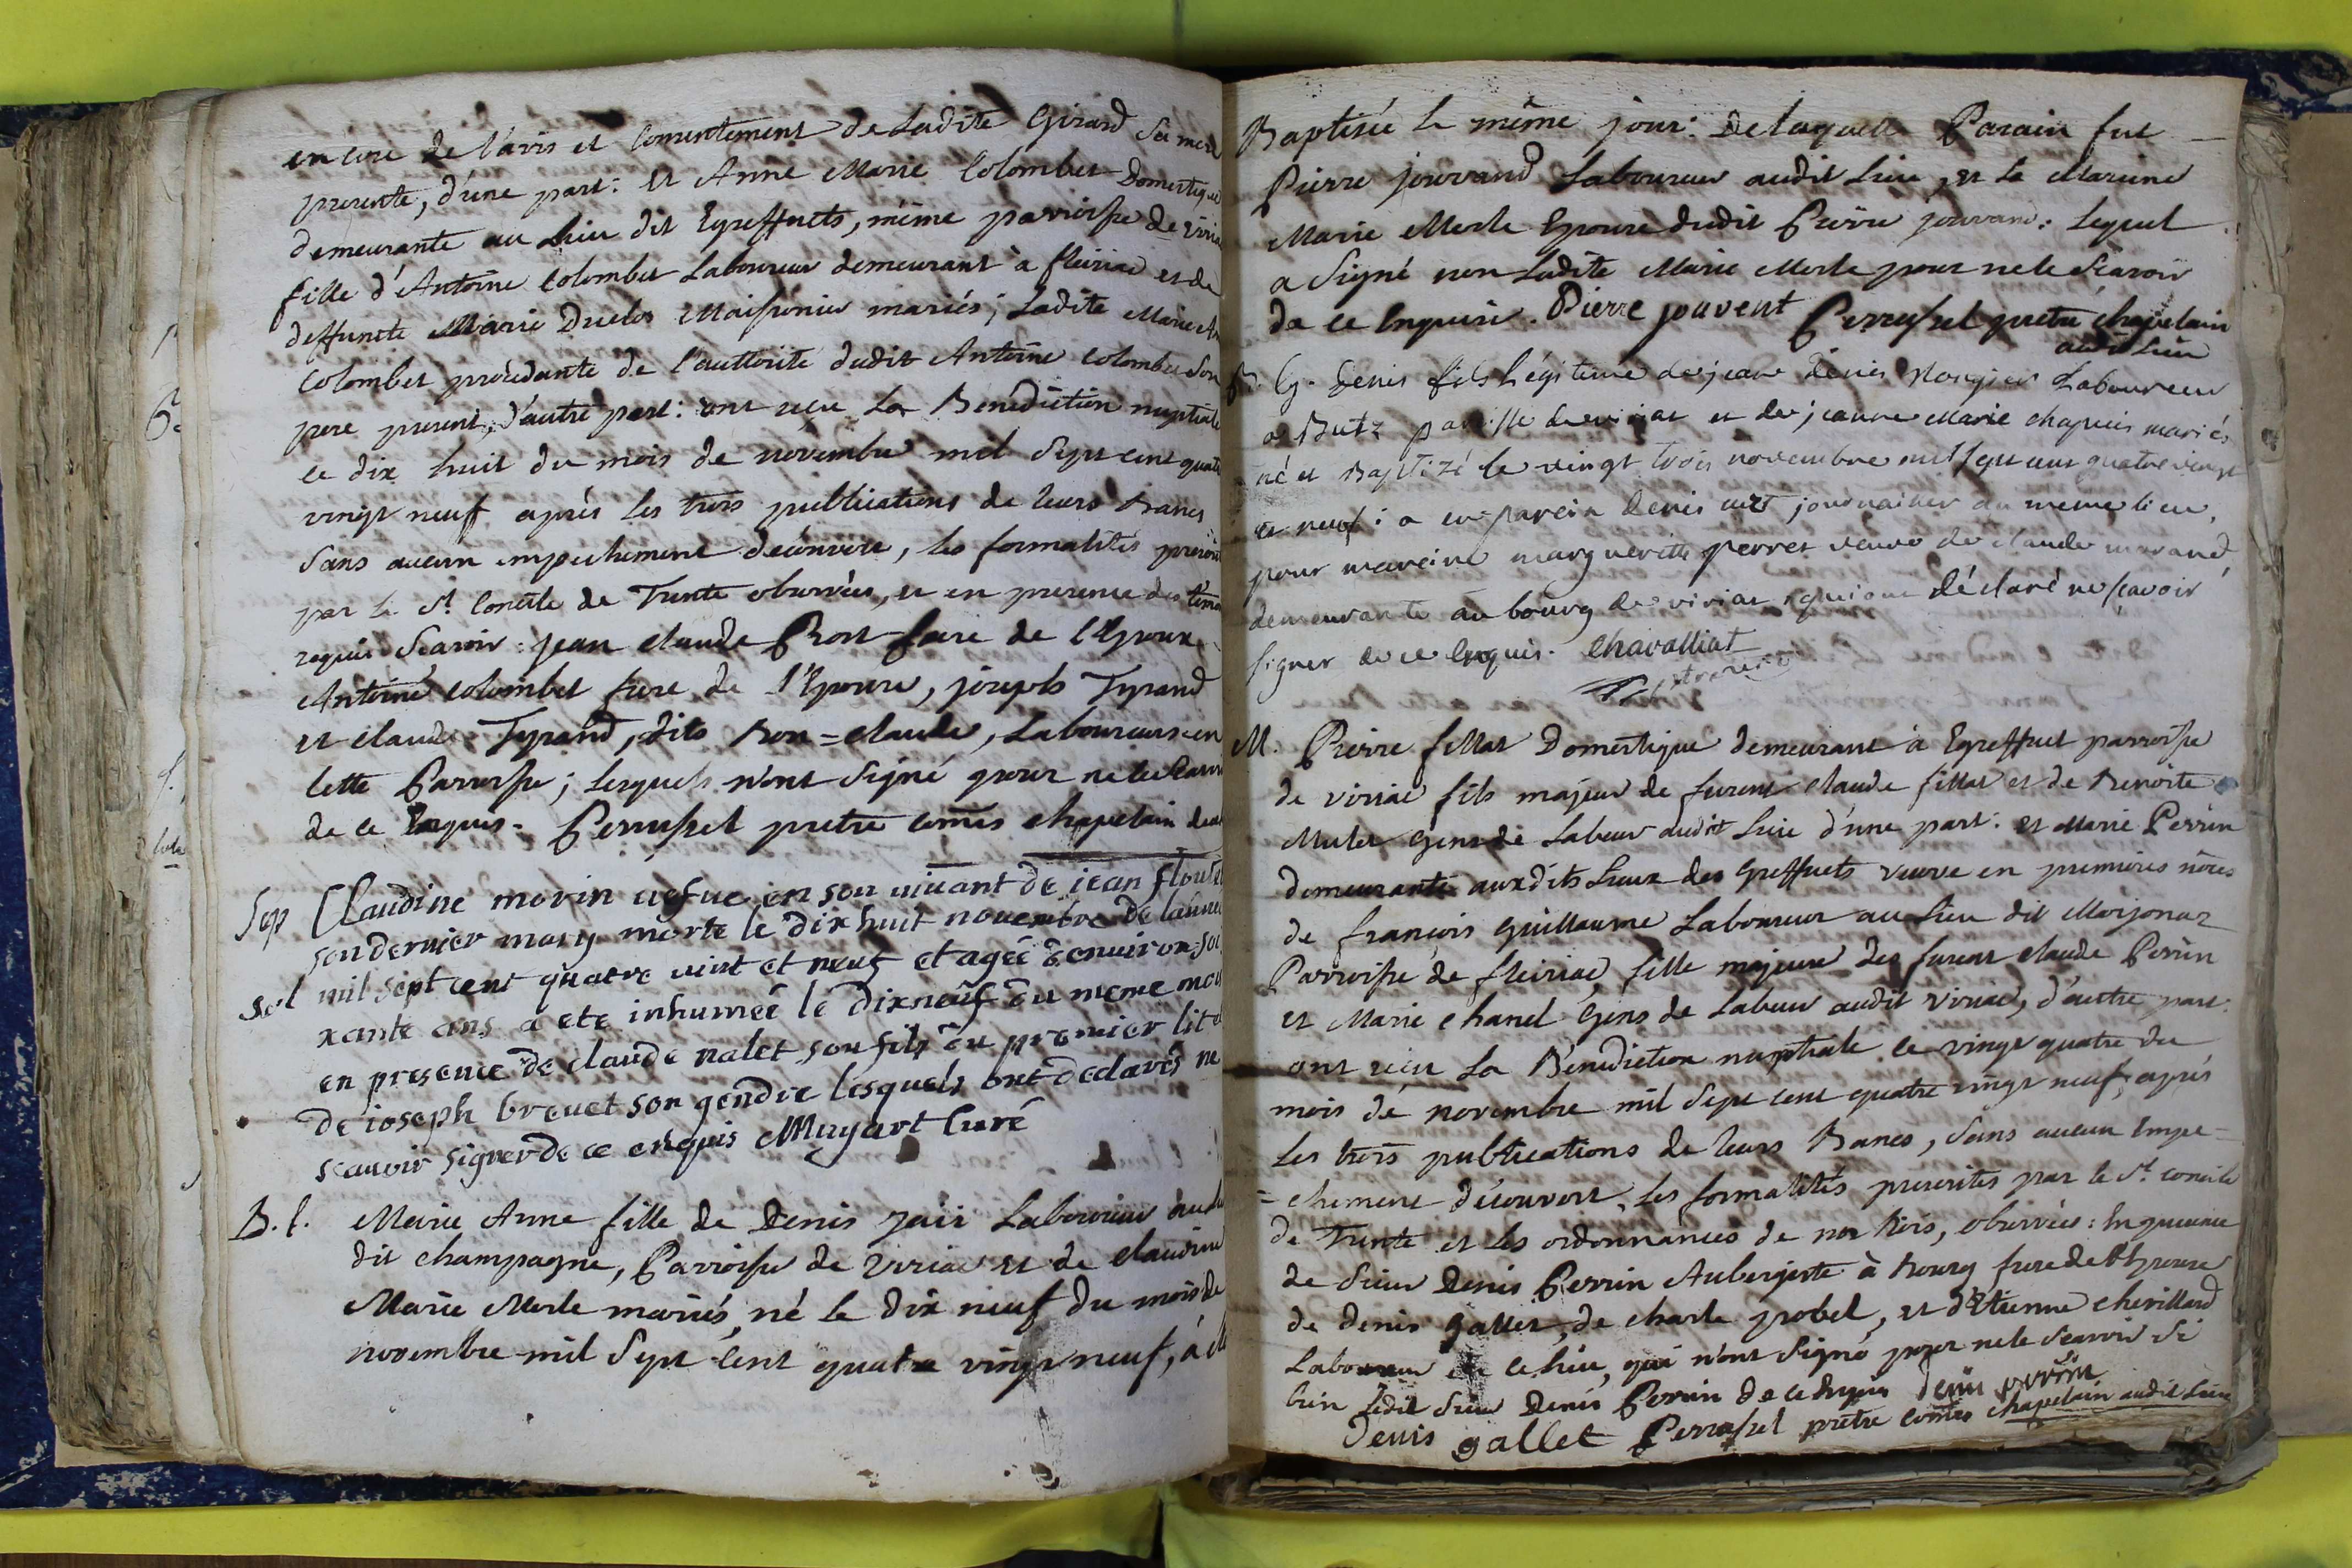 encore de l'avis et consentement de Ladite Girard Sa mere
presente, d'une part: et Anne Marie Colombet Domestique
demeurante au Lieu dit Egreffiets, même parroisse de Viria
fille d'Antoine Colombet Laboureur demeurant à fleiriac et de
deffunte Marie Duclos Maisonier mariés; Ladite Marie An
Colombet procédante de l'authorité dudit Antoine Colombet Son
pere present, d'autre part: ont reçu La Bénédiction nuptiale
le dix huit du mois de novembre mil Sept cent quatre
vingt neuf après les trois publications de leurs Bancs
Sans aucun empechement découvert, les formalités prescrites
par le St. Concile de Trente observées, et en presence des témo
requis Scavoir: jean claude Bost frere de l'Epoux
Antoine Colombet frere de l'Epouse, joseph Tyrand
et claude Tyrand, dits Bon=claude, Laboureurs en
Cette Parroisse; Lesquels n'ont Signé pour ne le Scavoir
de ce Enquis. Perrussel pretre comis chapelain
Sep Claudine morin uefue en son uiuant de iean
son dernier mary morte le dix huit nouembre de lannee
Sol mil sept cent quatre uint et neuf et agée denuiron soi
xante ans a ete inhumée le dixneuf du meme moi
en presence de claude nalet son fils du premier lit et
de ioseph breuet son gendre lesquels ont declarés ne
scauoir signer de ce enquis Muyart Curé
B. f. Marie Anne fille de Denis Laboureur au
dit champagne, Parroisse de Viriac et de claudine
Marie Merle mariés, né le dix neuf du mois de
novembre mil Sept Cent quatre vingt neuf, a été
Baptisée le même jour: De laquelle Parain fut
Pierre jouvand Laboureur audit Lieu, et la Maraine
Marie Merle Epouse dudit Pierre jouvand: Lequel
a Signé non Ladite Marie Merle pour ne le Scavoir
de ce Enquise. Pierre jouvent Perrussel pretre chapelain
audit Lieu
B. G. Denis fils Légitime de jean denis Laboureur
a Butz paroisse de viriat et de jeanne Marie chapuis mariés
né et Baptizé le vingt trois novembre mil sept cent quatre vingt
et neuf: a eu parein Denis journailier du meme lieu,
pour mareine marguerite perret veuve de claude morand,
demeurante au bourg de viriat, qui ont déclaré ne scavoir
signer de ce Enquis. Chavalliat
M. Pierre fillat Domestique demeurant à Egreffiet parroisse
de viriac fils majeur de furent claude fillat et de Benoite
Mulet Gens de Labeur audit Lieu d'une part: et Marie Perrin
demeurante auxdits Lieux des Greffiets veuve en premières nôces
de françois Guillaume Laboureur au Lieu dit Moijonaz
Parroisse de fleiriac, fille majeure des furent claude Perrin
et Marie Chanel Gens de Labeur audit Viriac, d'autre part:
ont reçu La Bénédiction nuptiale le vingt quatre du
mois de novembre mil Sept cent quatre vingt neuf, après
Les trois publications de leurs Bancs, Sans aucun Empe=
=chement découvert, les formalités prescrites par le St. concile
de Trente et les ordonnances de nos Rois, observées: En presence
de Sieur Denis Perrin Aubergiste à Bourg frere de l'Epouse
de denis Gallet, de charle probel, et d'Etienne chevillard
Laboureur de ce Lieu, qui n'ont Signé pour ne le Scavoir Si
bien Ledit Sieur Denis Perrin de ce Enquis denis perrin
Denis gallet Perrussel prêtre comis chapelain audit Lieu